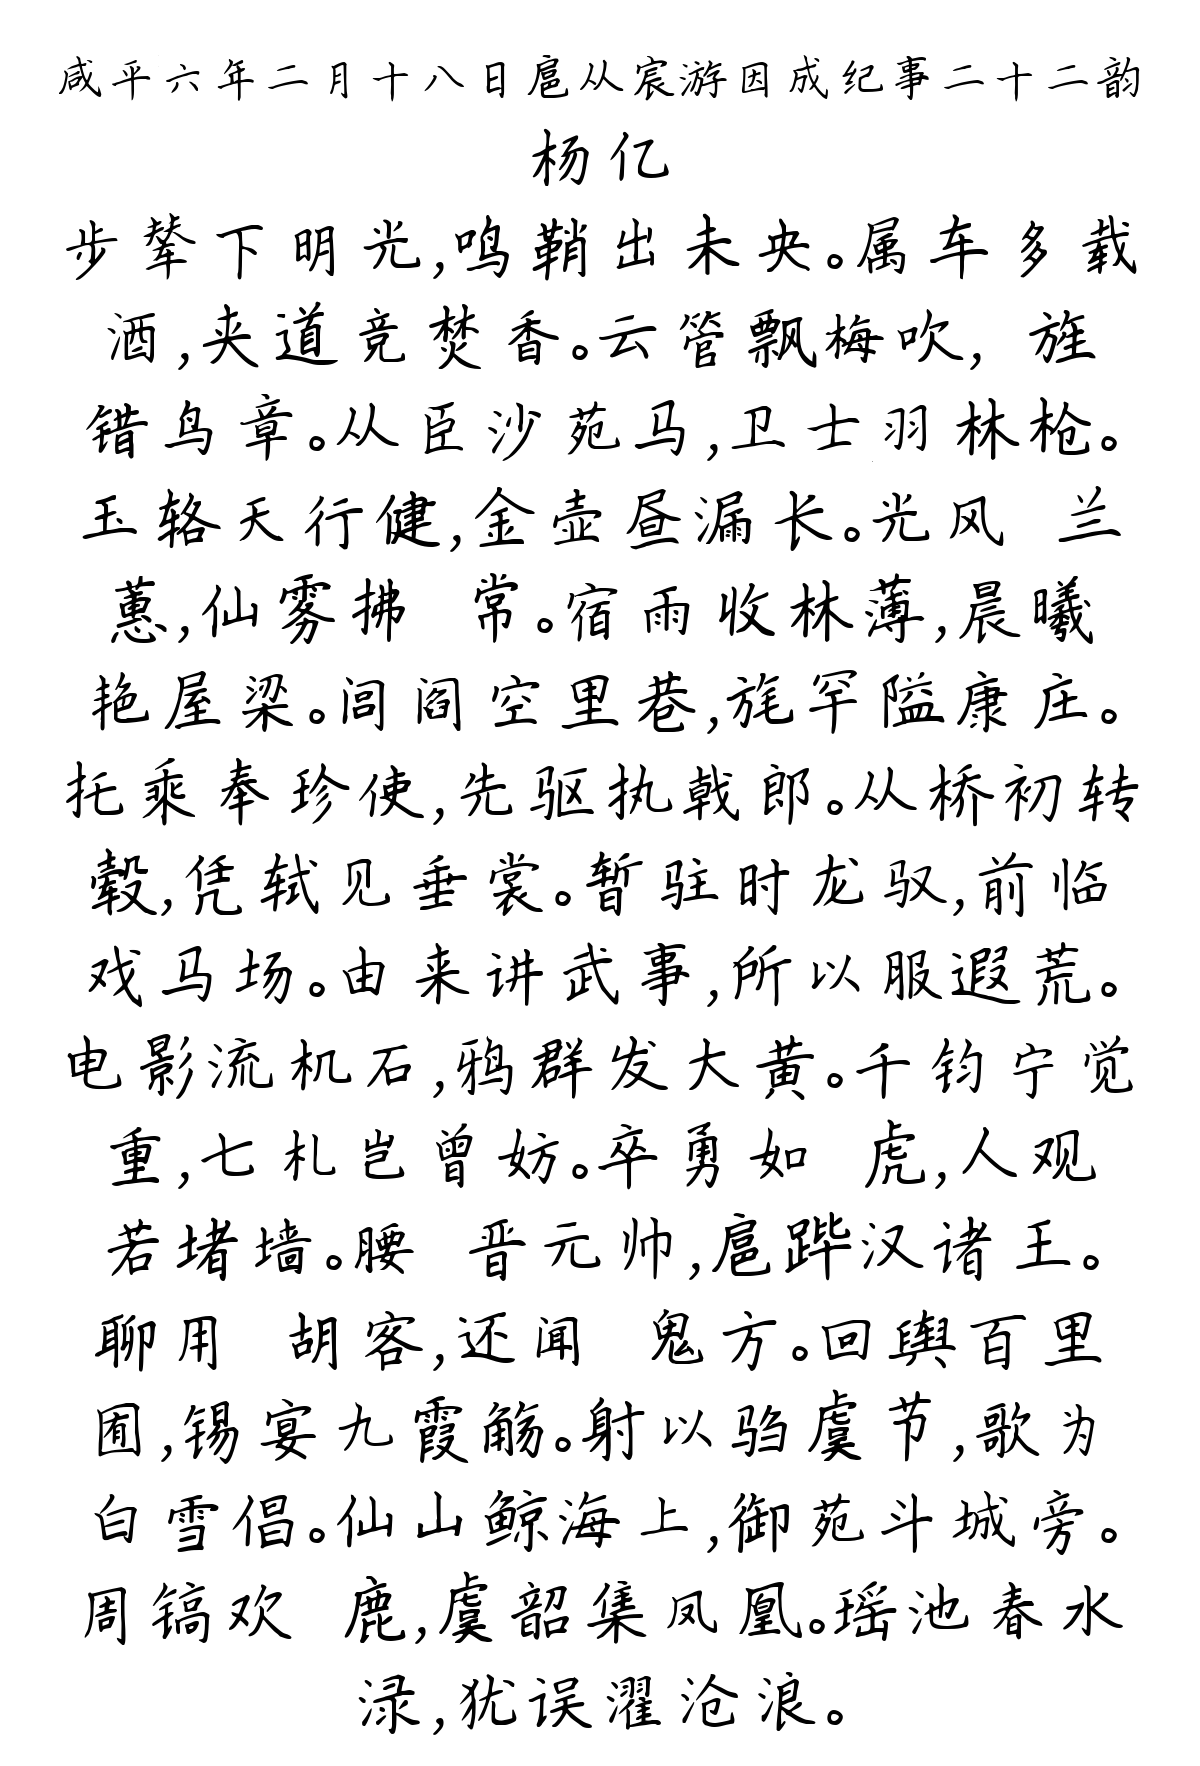 咸平六年二月十八日扈从宸游因成纪事二十二韵
杨亿
步辇下明光,鸣鞘出未央。属车多载
酒,夹道竞焚香。云管飘梅吹, 旌
错鸟章。从臣沙苑马,卫士羽林枪。
玉辂天行健,金壶昼漏长。光风 兰
蕙,仙雾拂 常。宿雨收林薄,晨曦
艳屋梁。闾阎空里巷,旄罕隘康庄。
托乘奉珍使,先驱执戟郎。从桥初转
毂,凭轼见垂裳。暂驻时龙驭,前临
戏马场。由来讲武事,所以服遐荒。
电影流机石,鸦群发大黄。千钧宁觉
重,七札岂曾妨。卒勇如 虎,人观
若堵墙。腰 晋元帅,扈跸汉诸王。
聊用 胡客,还闻 鬼方。回舆百里
囿,锡宴九霞觞。射以驺虞节,歌为
白雪倡。仙山鲸海上,御苑斗城旁。
周镐欢 鹿,虞韶集凤凰。瑶池春水
渌,犹误濯沧浪。